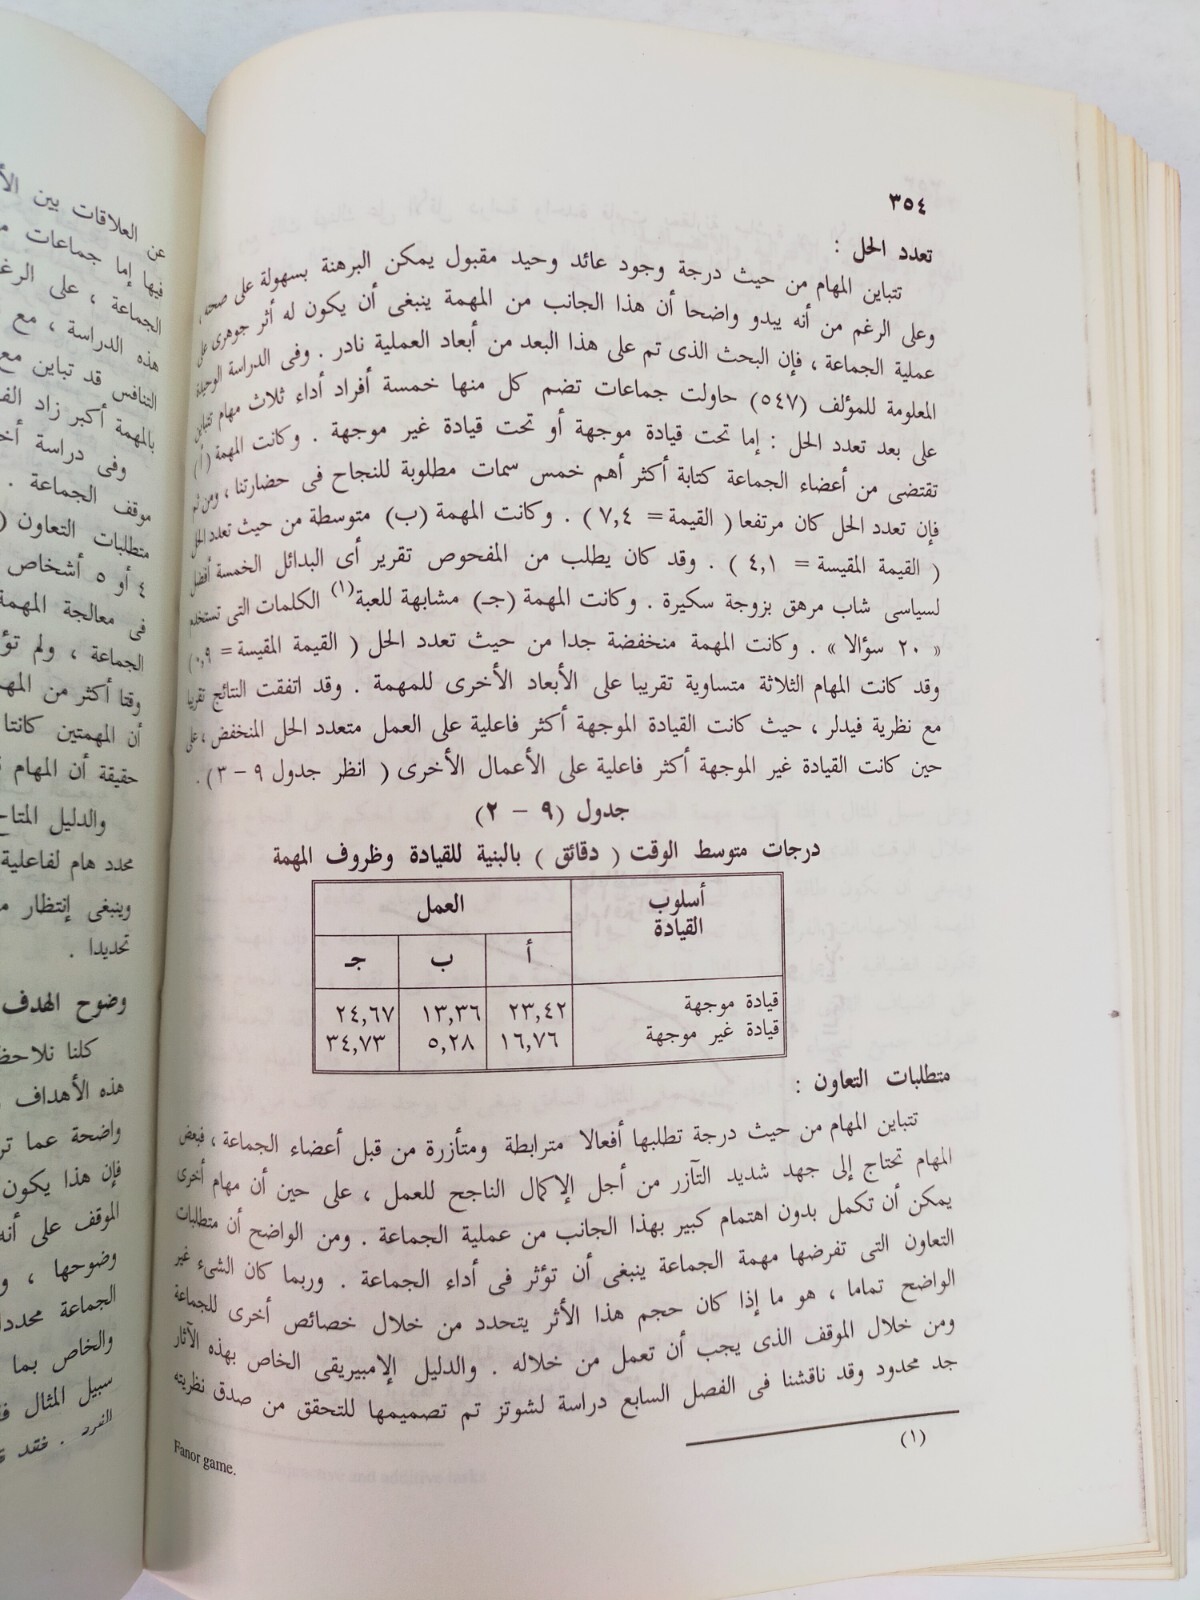 ٣٥٤
تعدد الحل :
تتباين المهام من حيث درجة وجود عائد وحيد مقبول يمكن البرهنة بسهولة على صحته ،
وعلى الرغم من أنه يبدو واضحا أن هذا الجانب من المهمة ينبغى أن يكون له أثر جوهرى على
عملية الجماعة ، فإن البحث الذى تم على هذا البعد من أبعاد العملية نادر . وفى الدراسة الوحيدة
المعلومة للمؤلف (٥٤٧) حاولت جماعات تضم كل منها خمسة أفراد أداء ثلاث مهام تتباين
على بعد تعدد الحل : إما تحت قيادة موجهة أو تحت قيادة غير موجهة . وكانت المهمة (أ)
تقتضى من أعضاء الجماعة كتابة أكثر أهم خمس سمات مطلوبة للنجاح فى حضارتنا ، ومن ثم
فإن تعدد الحل كان مرتفعا ( القيمة = ٧,٤ ) . وكانت المهمة (ب) متوسطة من حيث تعدد الحل
( القيمة المقيسة = ٤,١ ) . وقد كان يطلب من المفحوص تقرير أى البدائل الخمسة أفضل
لسياسى شاب مرهق بزوجة سكيرة . وكانت المهمة (جـ) مشابهة للعبة(١) الكلمات التى تستخدم
« ٢٠ سؤالا » . وكانت المهمة منخفضة جدا من حيث تعدد الحل ( القيمة المقيسة = ٠,٩)
وقد كانت المهام الثلاثة متساوية تقريبا على الأبعاد الأخرى للمهمة . وقد اتفقت النتائج تقريبا
مع نظرية فيدلر ، حيث كانت القيادة الموجهة أكثر فاعلية على العمل متعدد الحل المنخفض ، على
حين كانت القيادة غير الموجهة أكثر فاعلية على الأعمال الأخرى ( انظر جدول ٩ – ٣) .
جدول (٩ – ٢)
درجات متوسط الوقت ( دقائق ) بالبنية للقيادة وظروف المهمة
أسلوب القيادة العمل
أ ب جـ
قيادة موجهة ٢٣,٤٢ ١٣,٣٦ ٢٤,٦٧
قيادة غير موجهة ١٦,٧٦ ٥,٢٨ ٣٤,٧٣
متطلبات التعاون :
تتباين المهام من حيث درجة تطلبها أفعالا مترابطة ومتأزرة من قبل أعضاء الجماعة ، فبعض
المهام تحتاج إلى جهد شديد التآزر من أجل الإكمال الناجح للعمل ، على حين أن مهام أخرى
يمكن أن تكمل بدون اهتمام كبير بهذا الجانب من عملية الجماعة . ومن الواضح أن متطلبات
التعاون التى تفرضها مهمة الجماعة ينبغى أن تؤثر فى أداء الجماعة . وربما كان الشىء غير
الواضح تماما ، هو ما إذا كان حجم هذا الأثر يتحدد من خلال خصائص أخرى للجماعة
ومن خلال الموقف الذى يجب أن تعمل من خلاله . والدليل الإمبيريقى الخاص بهذه الآثار
جد محدود وقد ناقشنا فى الفصل السابع دراسة لشوتز تم تصميمها للتحقق من صدق نظريته
(١)
Fanor game.
عن العلاقات بين
فيها إما جماعات
الجماعة ، على
هذه الدراسة ، مع
التنافس قد تباين مع
بالمهمة أكبر زاد
وفى دراسة
موقف الجماعة .
متطلبات التعاون (
٤ أو ٥ أشخاص
فى معالجة المهمة
الجماعة ، ولم
وقتا أكثر من
أن المهمتين كانتا
حقيقة أن المهام
والدليل
محدد هام لفاعلية
وينبغى إنتظار
تحديدا .
وضوح الهدف
كلنا
هذه الأهداف
واضحة عما
فإن هذا يكون
الموقف على
وضوحها ،
الجماعة
والخاص بما
سبيل المثال
الفرد . فقد